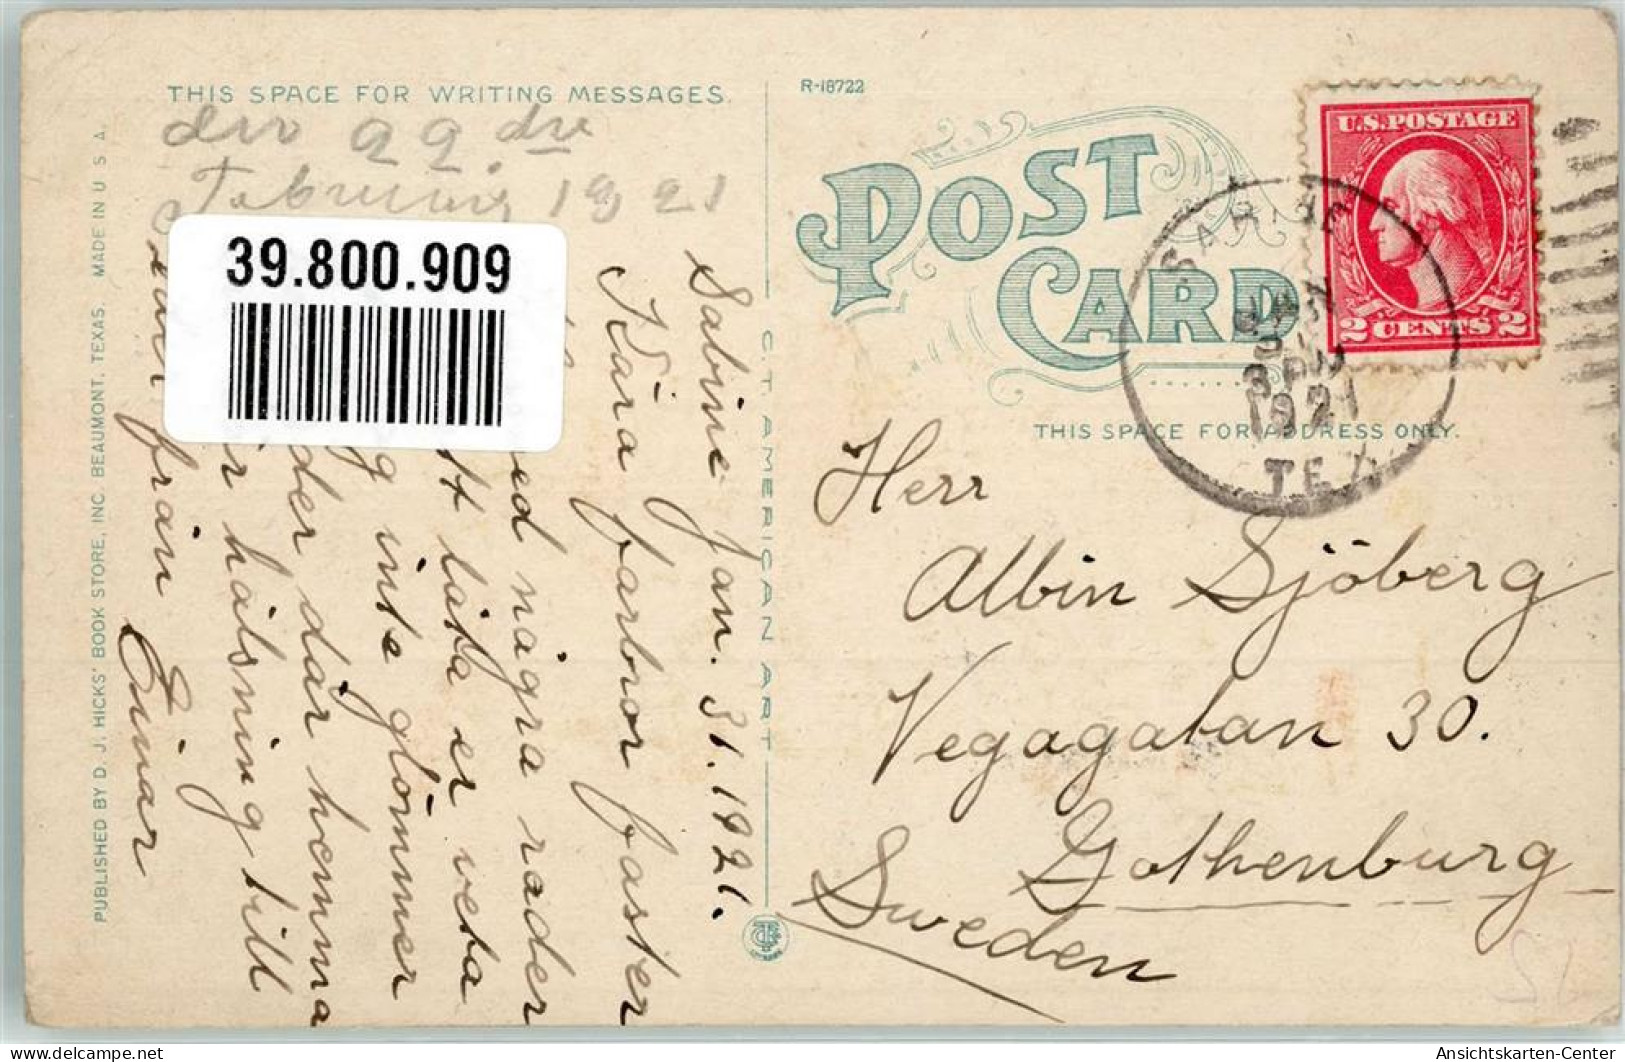 THIS SPACE FOR WRITING MESSAGES.
R-18722
den 22 dre
Februari 1921
39.800.909
Sabine Jan. 31. 1921.
Kära farbror faster
ed några rader
tt låta er veta
g inte glömmer
der där hemma
r hälsning till
från Einar
PUBLISHED BY D. J. HICKS' BOOK STORE, INC. BEAUMONT, TEXAS. MADE IN U S A.
C.T. AMERICAN ART
POST
CARD
THIS SPACE FOR ADDRESS ONLY.
U.S. POSTAGE
2 CENTS 2
SABINE
JAN
31
1921
TEX
Herr
Albin Sjöberg
Vegagatan 30.
Gothenburg
Sweden
52
Ansichtskarten-Center
delcampe.net